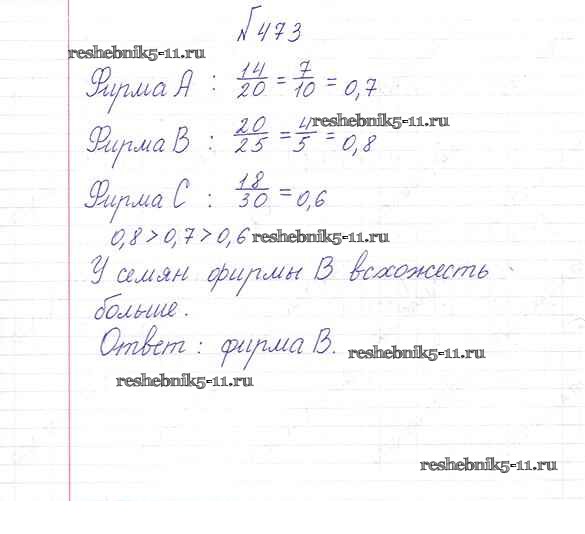 №473
reshebnik5-11.ru
Фирма А : 14/20 = 7/10 = 0,7
reshebnik5-11.ru
Фирма В : 20/25 = 4/5 = 0,8
Фирма С : 18/30 = 0,6
0,8 > 0,7 > 0,6 reshebnik5-11.ru
У семян фирмы В всхожесть
больше.
Ответ : фирма В. reshebnik5-11.ru
reshebnik5-11.ru
reshebnik5-11.ru